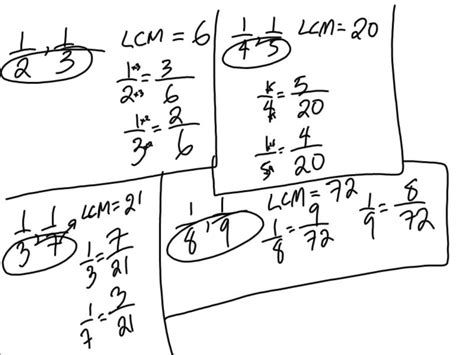 1/2, 1/3 LCM = 6
1×3/2×3 = 3/6
1×2/3×2 = 2/6
1/4, 1/5 LCM = 20
1/4 = 5/20
1/5 = 4/20
1/3, 1/7 LCM = 21
1/3 = 7/21
1/7 = 3/21
1/8, 1/9 LCM = 72
1/8 = 9/72 1/9 = 8/72